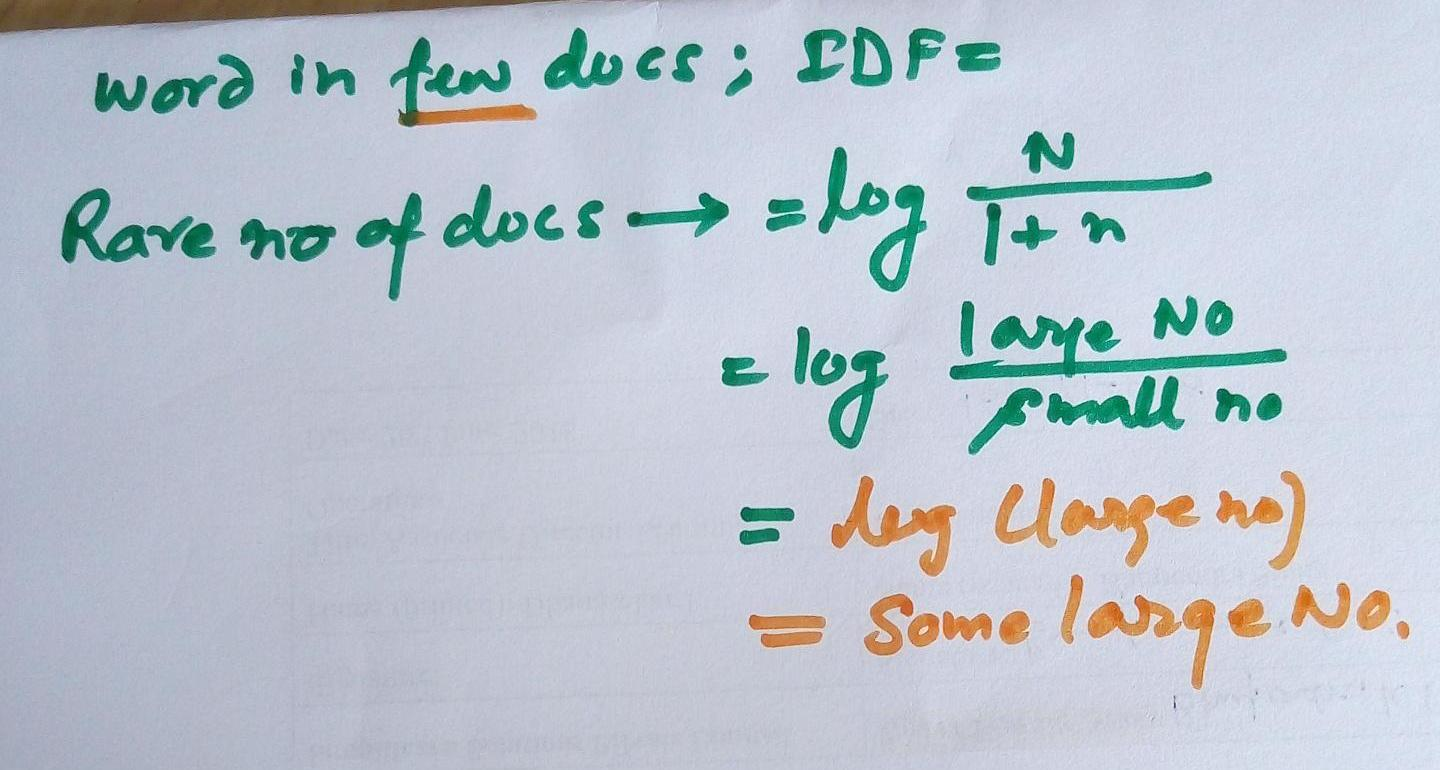 word in few docs; IDF=
Rare no of docs → = log N / 1+n
= log large No / small no
= log (large no)
= Some large No.